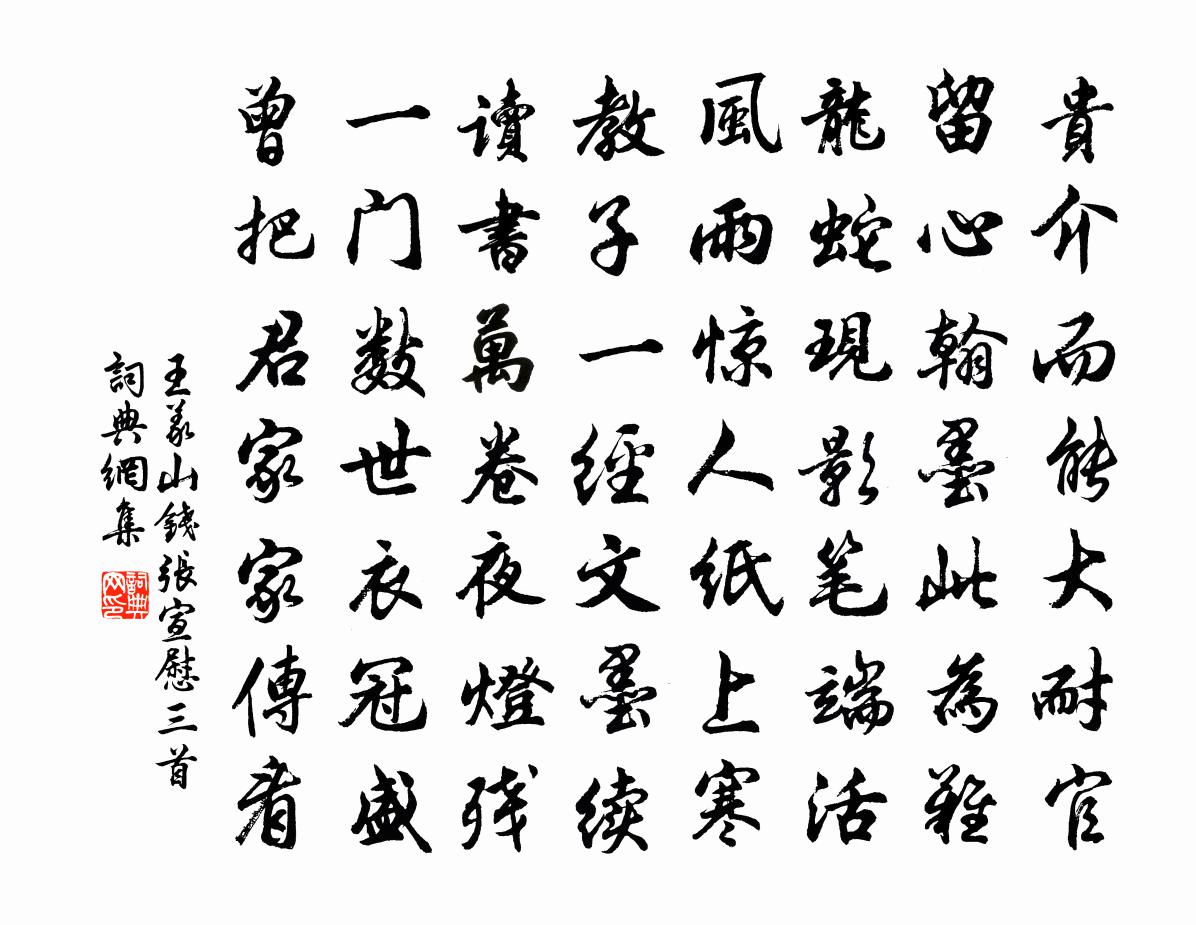 貴介而能大耐官
留心翰墨此為難
龍蛇現影笔端活
風雨惊人紙上寒
教子一經文墨续
讀書萬卷夜燈残
一门数世衣冠盛
曾把君家家傳看
王義山錢張宣慰三首
詞典網集
詞典网印